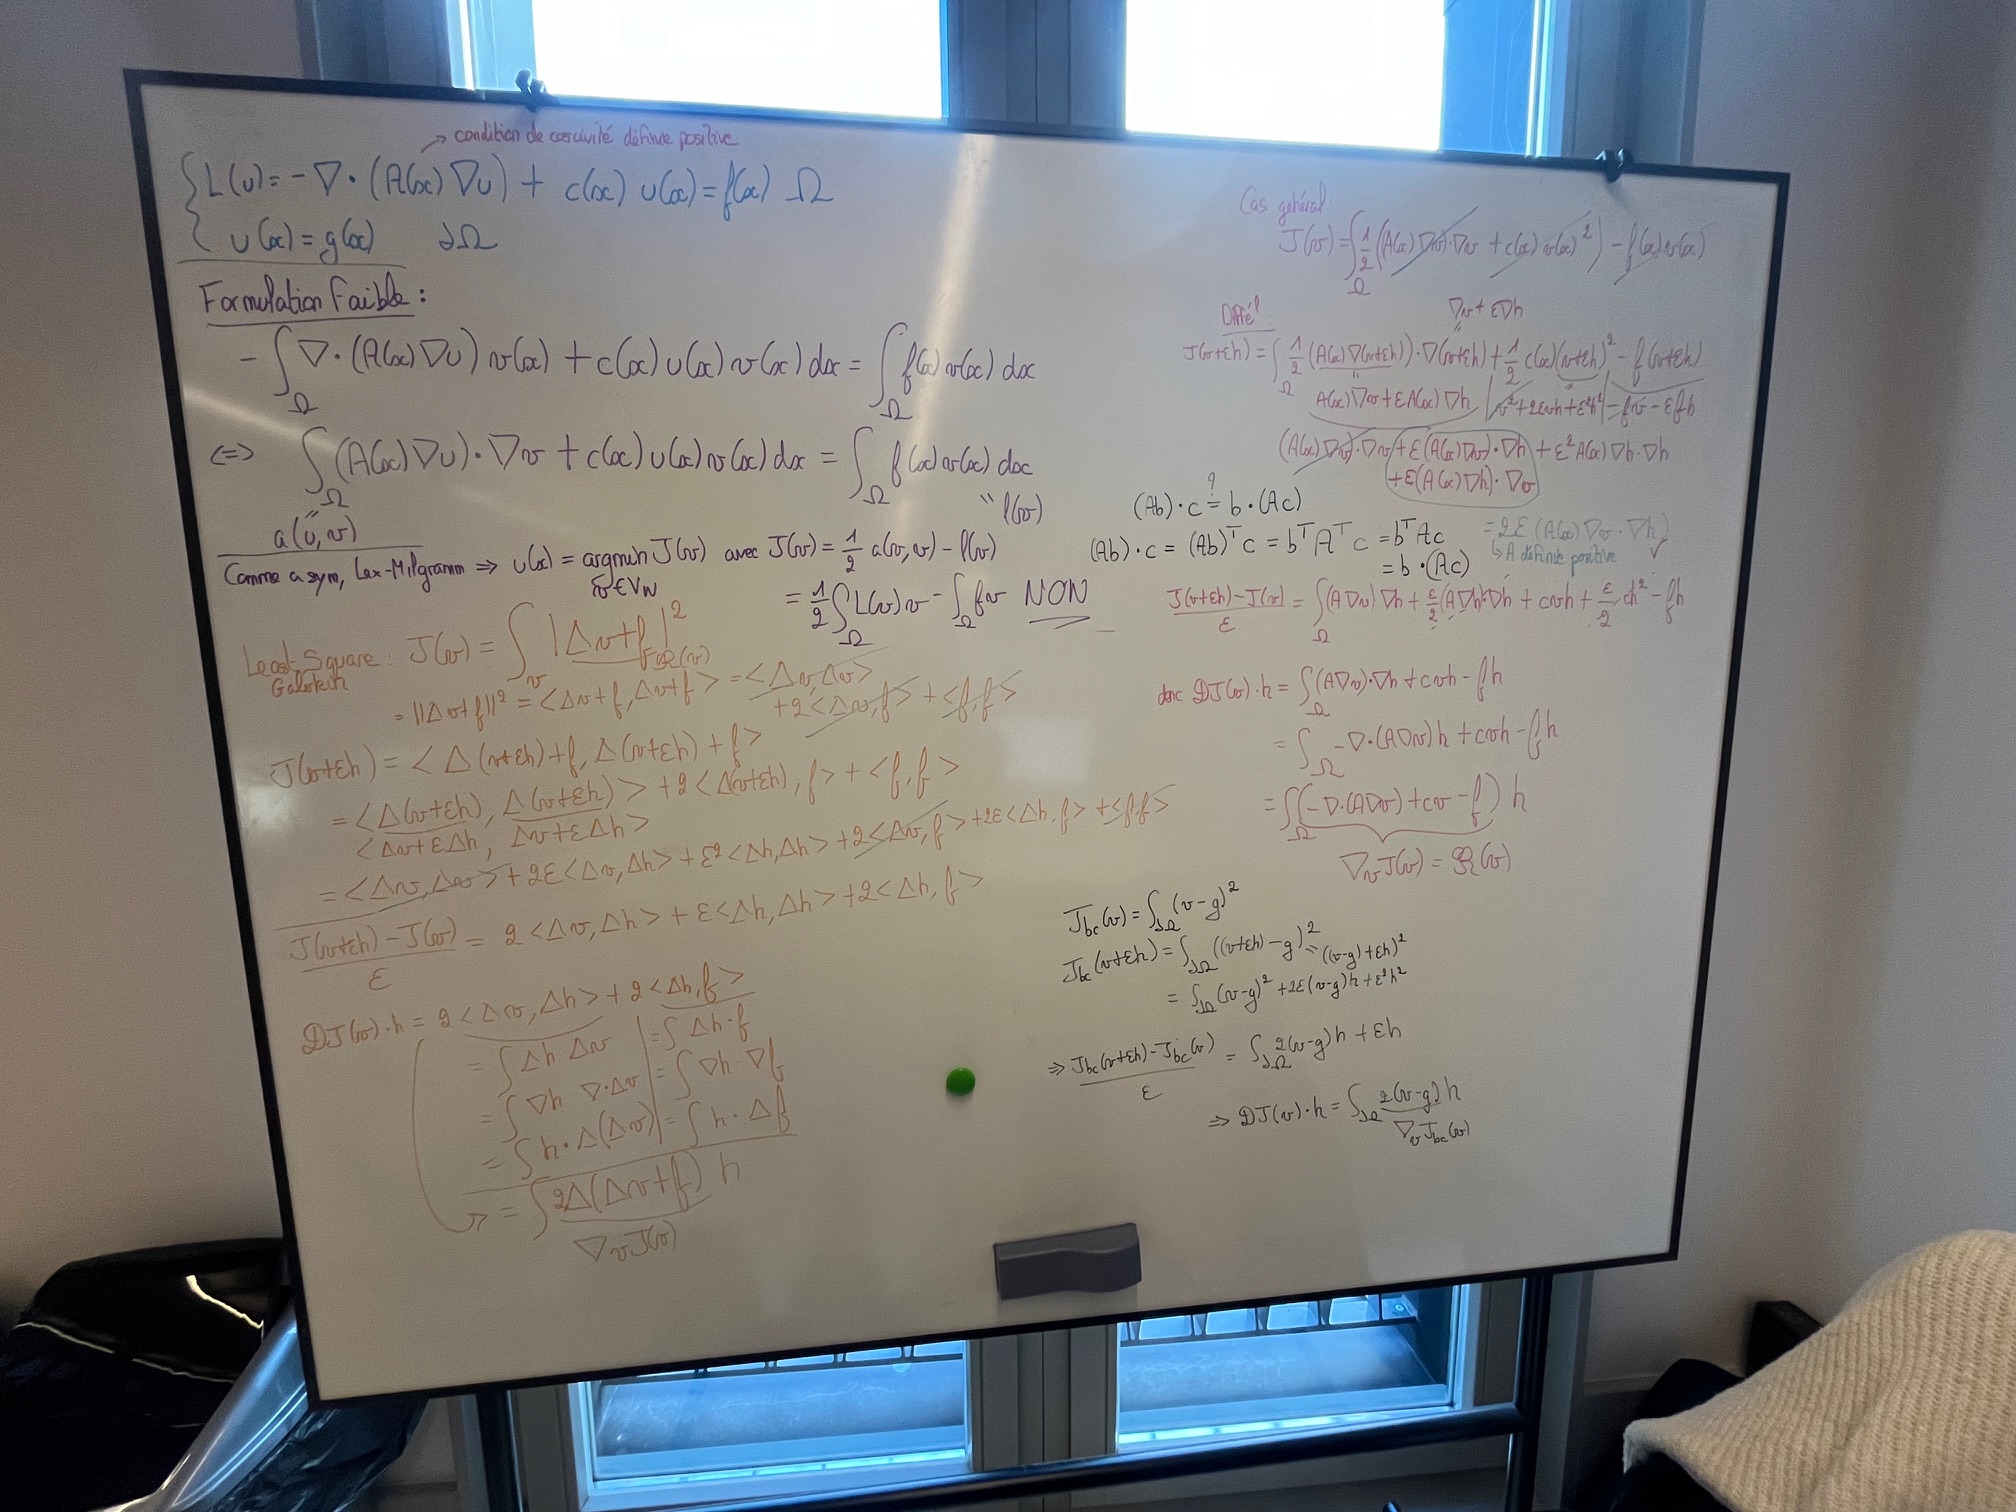 → condition de coercivité définie positive
{ L(u) = -∇·(A(x)∇u) + c(x) u(x) = f(x) Ω
u(x) = g(x) ∂Ω
Formulation Faible :
-∫_Ω ∇·(A(x)∇u) v(x) + c(x) u(x) v(x) dx = ∫_Ω f(x) v(x) dx
<=> ∫_Ω (A(x)∇u)·∇v + c(x) u(x) v(x) dx = ∫_Ω f(x) v(x) dx
" a(u,v) " l(v)
Comme a sym, Lax-Milgramm ⇒ u(x) = argmin J(v) avec J(v) = 1/2 a(v,v) - l(v)
v∈V_N
= 1/2 ∫_Ω L(v) v - ∫_Ω fv NON
Least Square : J(v) = ∫_v |Δv+f|²
Galerkin R(v)
= ||Δv+f||² = <Δv+f, Δv+f> = <Δv,Δv>
+2<Δv,f> + <f,f>
J(v+εh) = <Δ(v+εh)+f, Δ(v+εh)+f>
= <Δ(v+εh), Δ(v+εh)> + 2<Δ(v+εh), f> + <f,f>
<Δv+εΔh, Δv+εΔh>
= <Δv,Δv> + 2ε<Δv,Δh> + ε²<Δh,Δh> + 2<Δv,f> + 2ε<Δh,f> + <f,f>
(J(v+εh) - J(v))/ε = 2<Δv,Δh> + ε<Δh,Δh> + 2<Δh,f>
DJ(v)·h = 2<Δv,Δh> + 2<Δh,f>
= ∫ Δh·Δv | = ∫ Δh·f
= ∫ ∇h ∇·Δv | = ∫ ∇h·∇f
= ∫ h·Δ(Δv) | = ∫ h·Δf
→ = ∫ 2Δ(Δv+f) h
∇_v J(v)
Cas général :
J(v) = ∫_Ω 1/2 ((A(x)∇v)·∇v + c(x) v(x)²) - f(x) v(x)
Différ :
∇v + ε∇h
J(v+εh) = ∫_Ω 1/2 (A(x)∇(v+εh))·∇(v+εh) + 1/2 c(x)(v+εh)² - f(v+εh)
A(x)∇v + εA(x)∇h | v²+2εvh+ε²h² | -fv - εfh
(A(x)∇v)·∇v + ε(A(x)∇v)·∇h + ε²A(x)∇h·∇h
+ε(A(x)∇h)·∇v
(Ab)·c ?= b·(Ac)
(Ab)·c = (Ab)ᵀc = bᵀAᵀc = bᵀAc = 2ε(A(x)∇v·∇h)
= b·(Ac) ↳ A définie positive ✓
(J(v+εh) - J(v))/ε = ∫_Ω (A∇v)∇h + ε/2 (A∇h)·∇h + cvh + ε/2 ch² - fh
donc DJ(v)·h = ∫_Ω (A∇v)·∇h + cvh - fh
= ∫_Ω -∇·(A∇v)h + cvh - fh
= ∫_Ω (-∇·(A∇v) + cv - f) h
∇_v J(v) = R(v)
J_bc(v) = ∫_∂Ω (v-g)²
J_bc(v+εh) = ∫_∂Ω ((v+εh)-g)² = ((v-g)+εh)²
= ∫_∂Ω (v-g)² + 2ε(v-g)h + ε²h²
⇒ (J_bc(v+εh) - J_bc(v))/ε = ∫_∂Ω 2(v-g)h + εh
⇒ DJ(v)·h = ∫_∂Ω 2(v-g)h
∇_v J_bc(v)